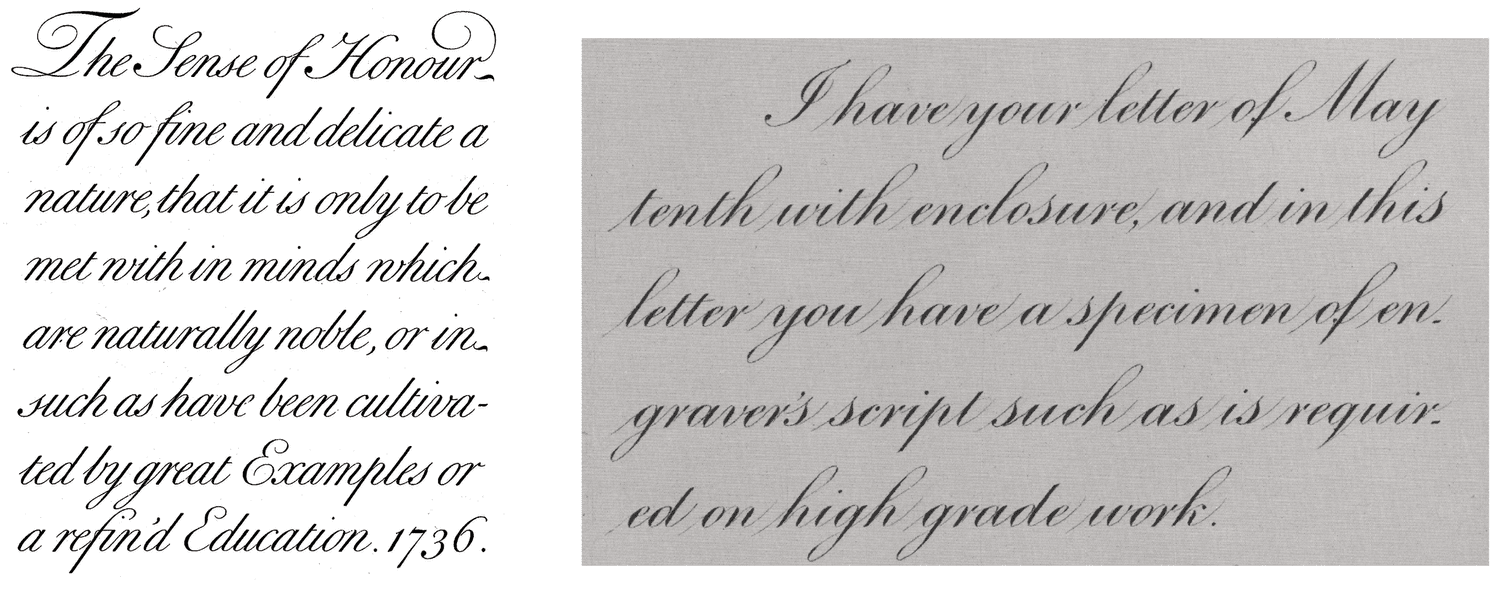 The Sense of Honour
is of so fine and delicate a
nature, that it is only to be
met with in minds which
are naturally noble, or in
such as have been cultiva-
ted by great Examples or
a refin'd Education. 1736.
I have your letter of May
tenth with enclosure, and in this
letter you have a specimen of en-
graver's script such as is requir-
ed on high grade work.